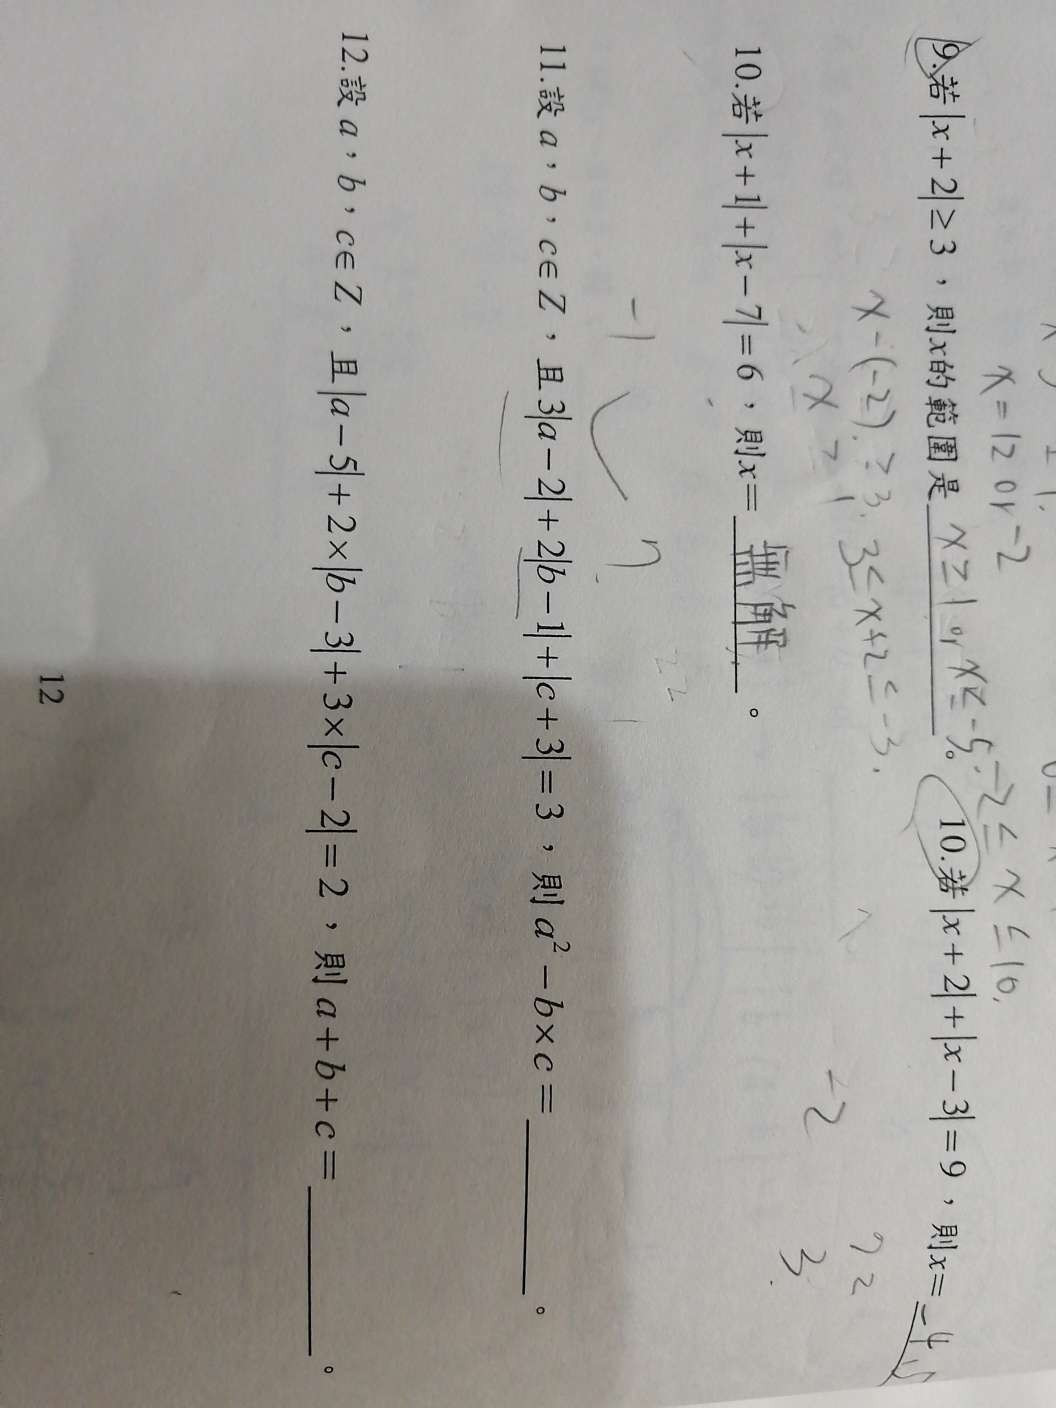 x = 12 or -2
-2 ≤ x ≤ 10.
9.若|x+2|≥3，則x的範圍是 x≥1 or x≤-5。 10.若|x+2|+|x-3|=9，則x= -4
x-(-2) ≥ 3. 3≤x+2≤-3.
x ≥ 1
-2 3
10.若|x+1|+|x-7|=6，則x= 無解。
-1 7
11.設a，b，c∈Z，且3|a-2|+2|b-1|+|c+3|=3，則a²-b×c=＿＿＿＿。
12.設a，b，c∈Z，且|a-5|+2×|b-3|+3×|c-2|=2，則a+b+c=＿＿＿＿。
12